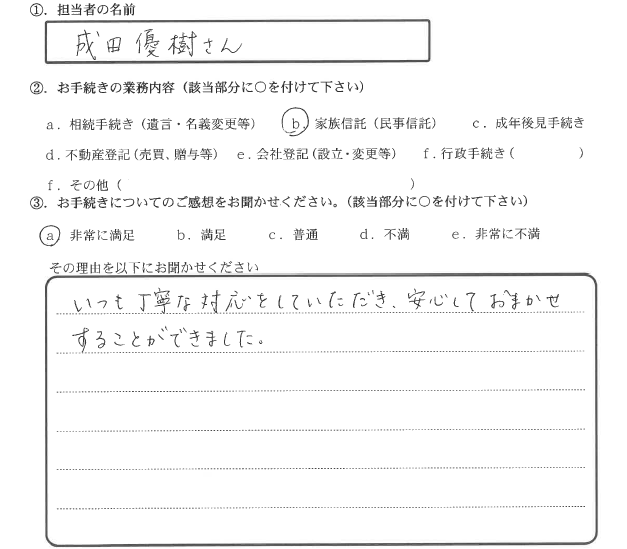 ①．担当者の名前
成田優樹さん
②．お手続きの業務内容（該当部分に○を付けて下さい）
a．相続手続き（遺言・名義変更等） b．家族信託（民事信託） c．成年後見手続き
d．不動産登記（売買、贈与等） e．会社登記（設立・変更等） f．行政手続き（ ）
f．その他（ ）
③．お手続きについてのご感想をお聞かせください。（該当部分に○を付けて下さい）
a 非常に満足 b．満足 c．普通 d．不満 e．非常に不満
その理由を以下にお聞かせください
いつも丁寧な対応をしていただき、安心しておまかせ
することができました。